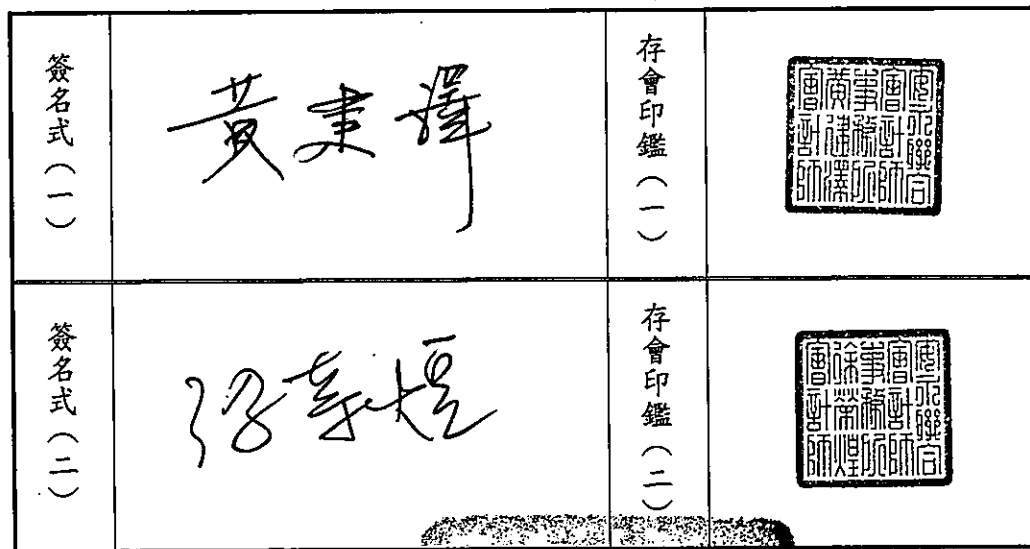 簽名式(一)
黃建澤
存會印鑑(一)
安永聯合
會計師
事務所
黃建澤
會計師
簽名式(二)
徐榮煌
存會印鑑(二)
安永聯合
會計師
事務所
徐榮煌
會計師